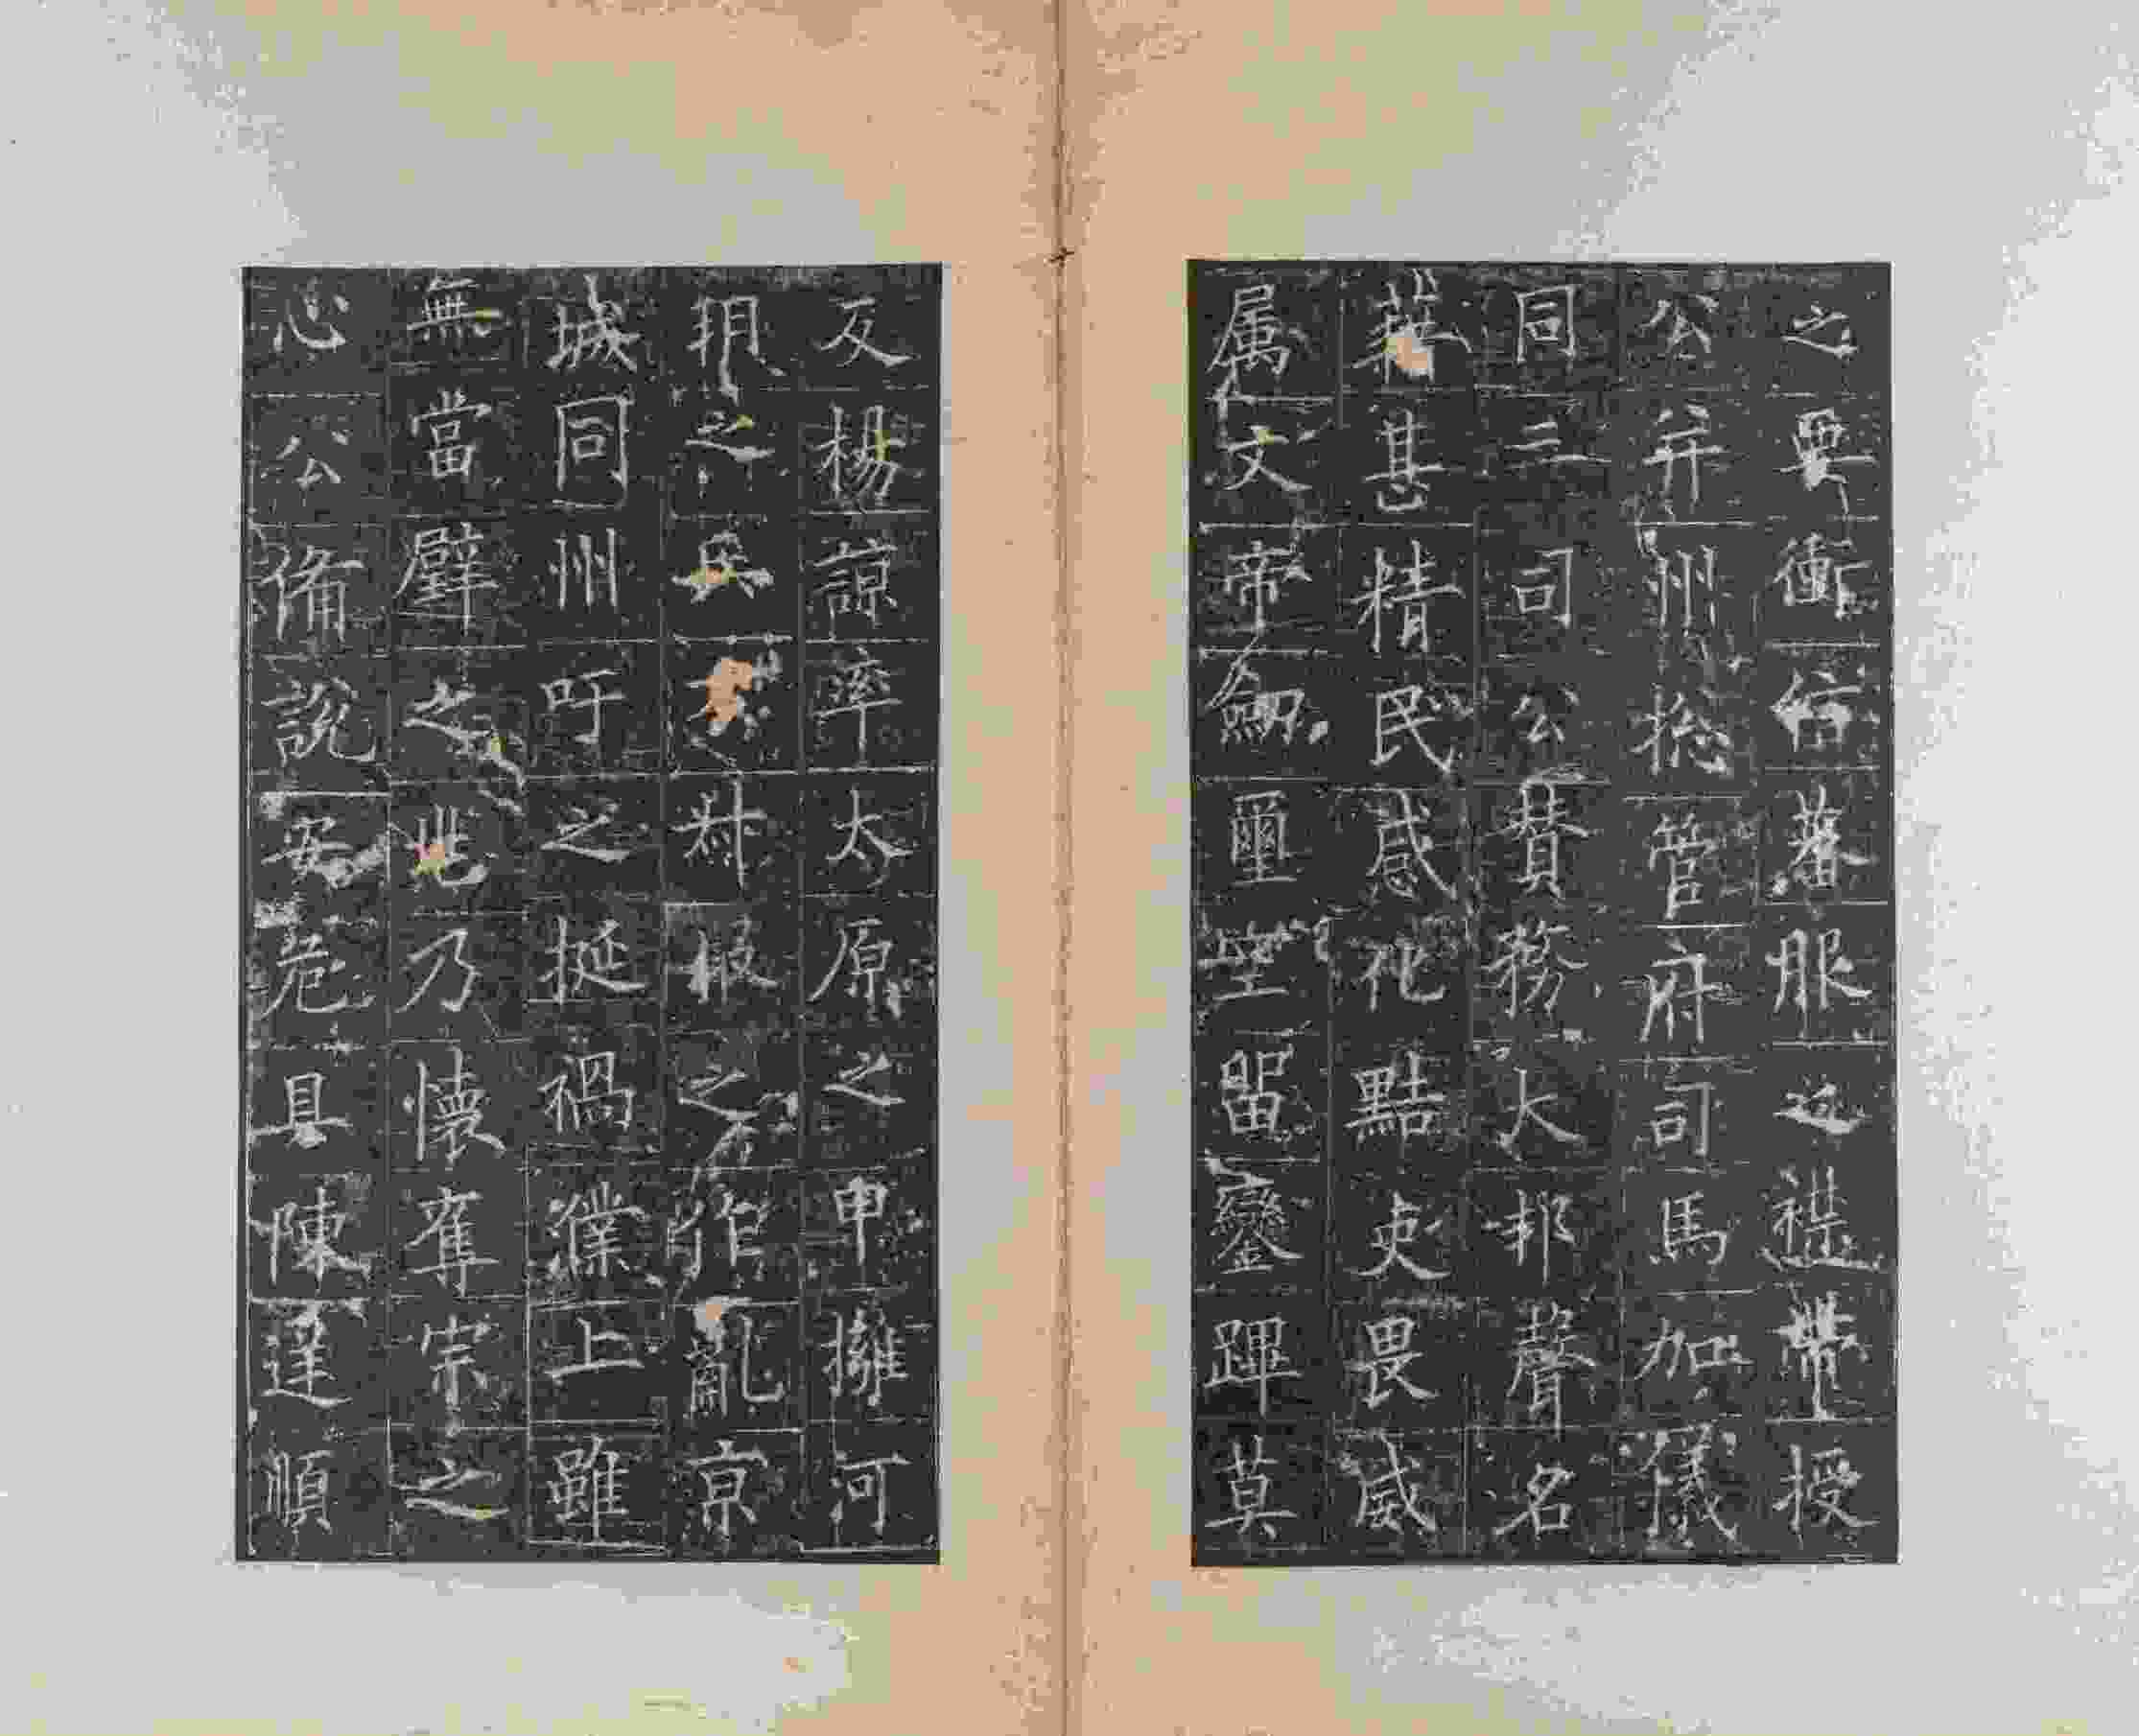 之要衝信蕃服之襟帶授
公并州揔管府司馬加儀
同三司公贊務大邦聲名
藉甚精民感化黠吏畏威
属文帝劒璽空留鑾蹕莫
反楊諒率太原之甲擁河
朔之兵方叔段之作亂京
城同州吁之挺禍濮上雖
無當璧之兆乃懷奪宗之
心公備說安危具陳逆順